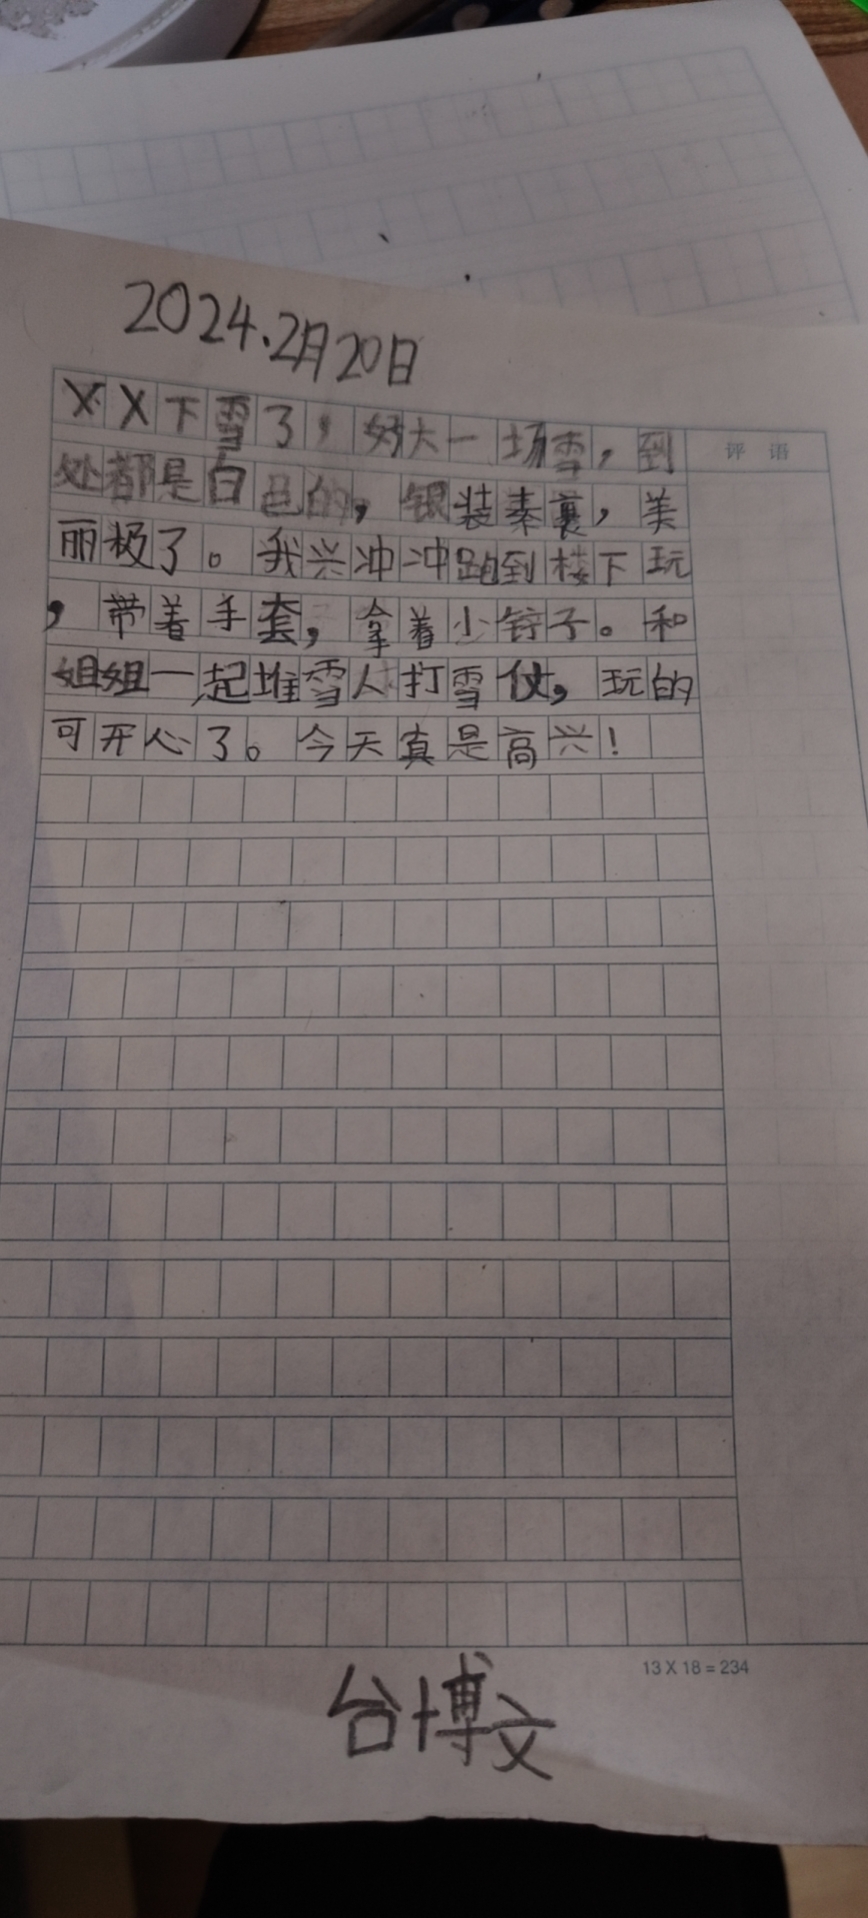 2024.2月20日
XX下雪了，好大一场雪，到
评语
处都是白色的，银装素裹，美
丽极了。我兴冲冲跑到楼下玩
，带着手套，拿着小铲子。和
姐姐一起堆雪人打雪仗，玩的
可开心了。今天真是高兴！
13 X 18 = 234
台博文